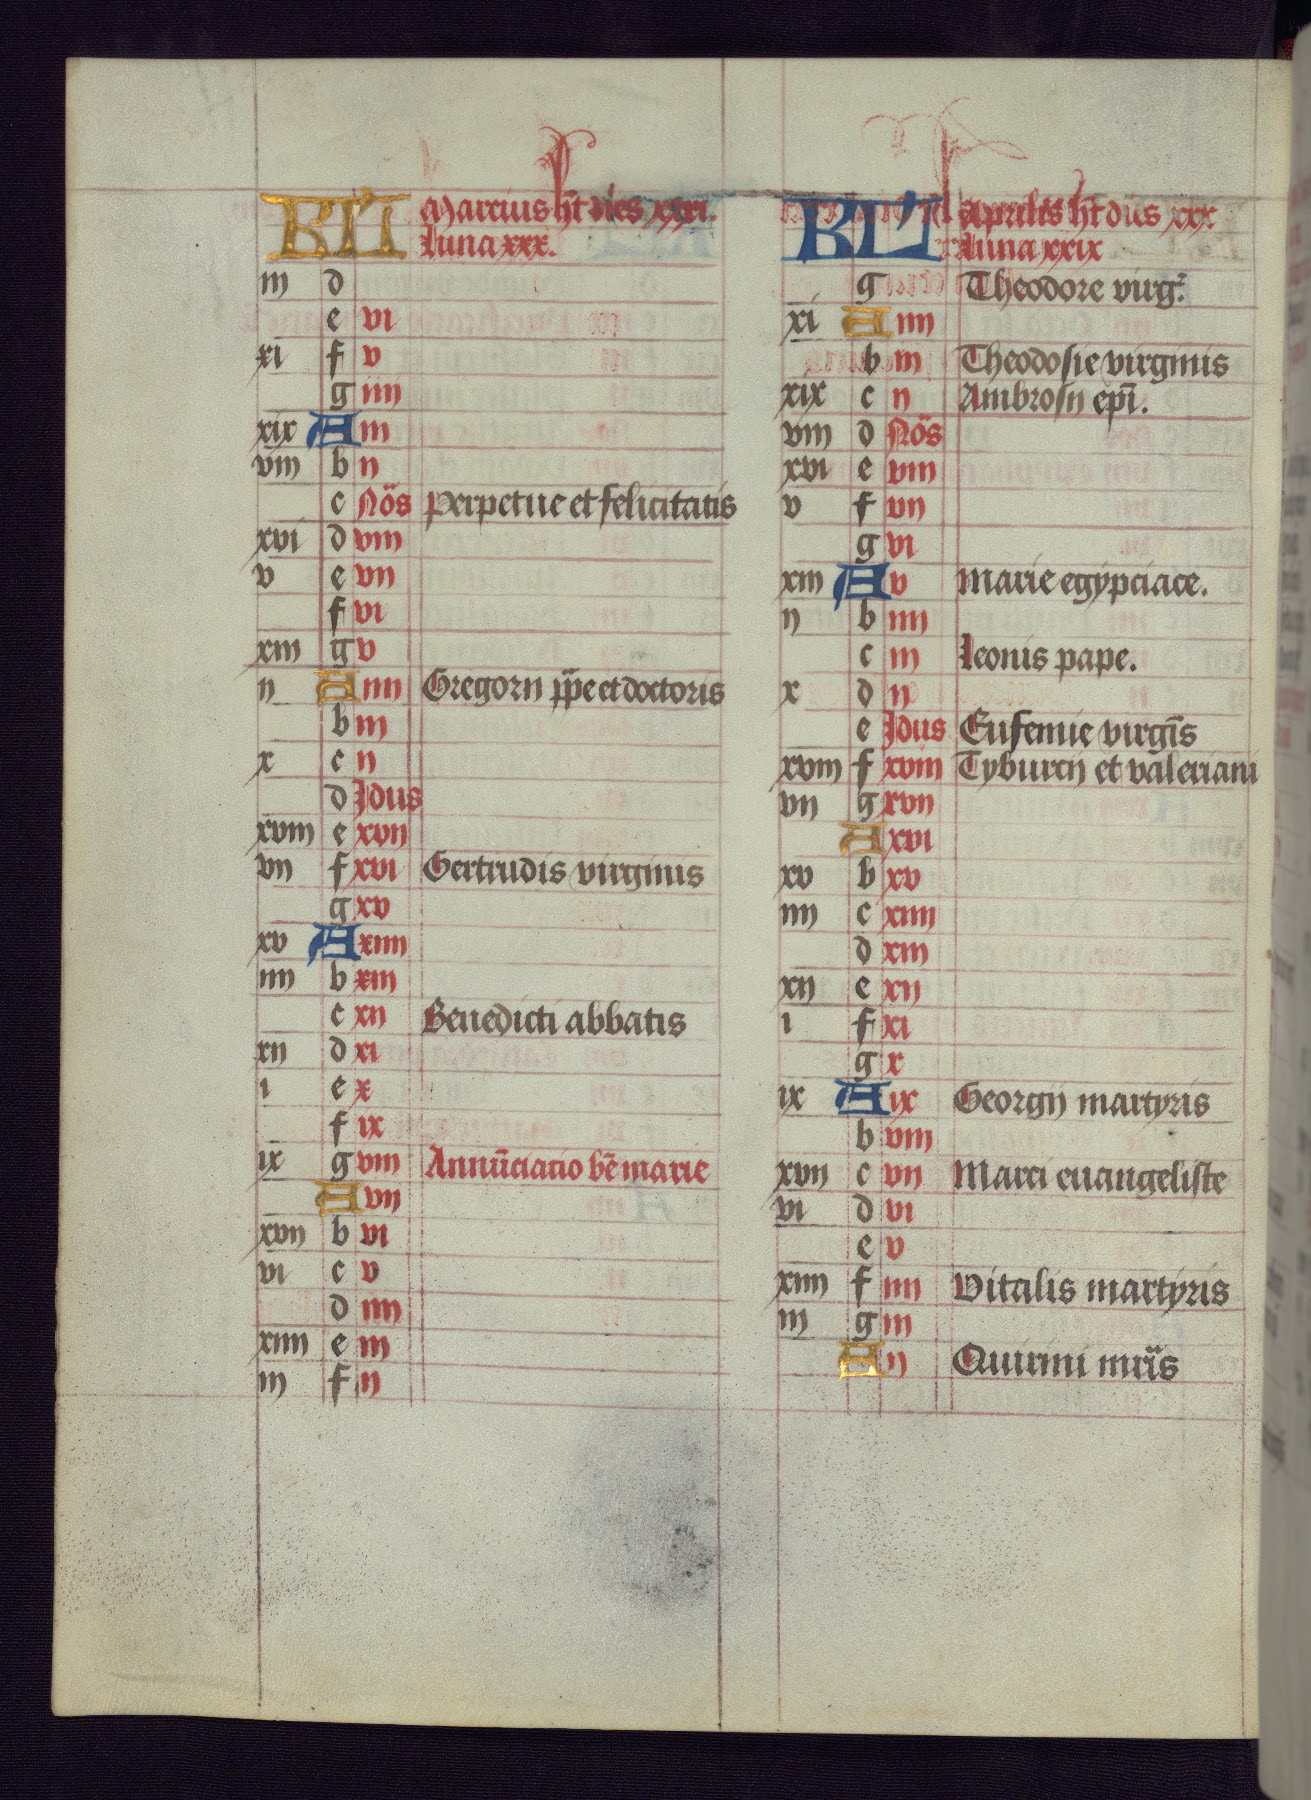 KL Marcius ht dies xxxi.
Luna xxx.
iii d
e vi
xi f v
g iiii
xix A iii
viii b ii
c Nōs Perpetue et felicitatis
xvi d viii
v e vii
f vi
xiii g v
ii A iiii Gregorii ppe et doctoris
b iii
x c ii
d Idus
xviii e xvii
vii f xvi Gertrudis virginis
g xv
xv A xiiii
iiii b xiii
c xii Benedicti abbatis
xii d xi
i e x
f ix
ix g viii Annūciatio bē marie
A vii
xvii b vi
vi c v
d iiii
xiiii e iii
iii f ii
KL Aprilis ht dies xxx
Luna xxix
g Theodore virg.
xi A iiii
b iii Theodosie virginis
xix c ii Ambrosii epī.
viii d Nōs
xvi e viii
v f vii
g vi
xiii A v Marie egypciace.
ii b iiii
c iii Leonis pape.
x d ii
e Idus Eufemie virgīs
xviii f xviii Tyburcii et valeriani
vii g xvii
A xvi
xv b xv
iiii c xiiii
d xiii
xii e xii
i f xi
g x
ix A ix Georgii martyris
b viii
xvii c vii Marci euangeliste
vi d vi
e v
xiiii f iiii Vitalis martyris
iii g iii
A ii Quirini mrīs